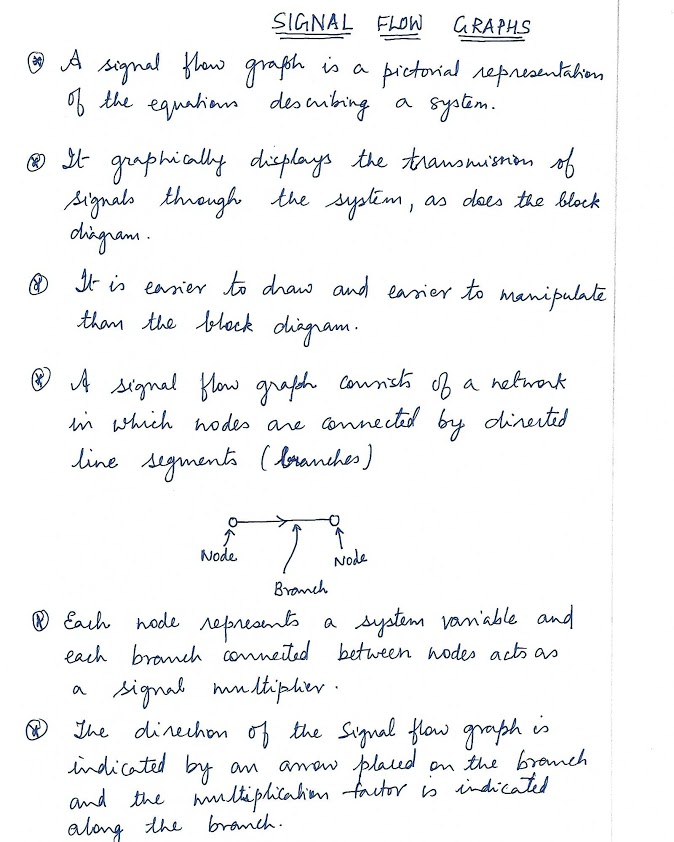 SIGNAL FLOW GRAPHS
A signal flow graph is a pictorial representation
of the equations describing a system.
It graphically displays the transmission of
signals through the system, as does the block
diagram.
It is easier to draw and easier to manipulate
than the block diagram.
A signal flow graph consists of a network
in which nodes are connected by directed
line segments (branches)
Node
Node
Branch
Each node represents a system variable and
each branch connected between nodes acts as
a signal multiplier.
The direction of the Signal flow graph is
indicated by an arrow placed on the branch
and the multiplication factor is indicated
along the branch.